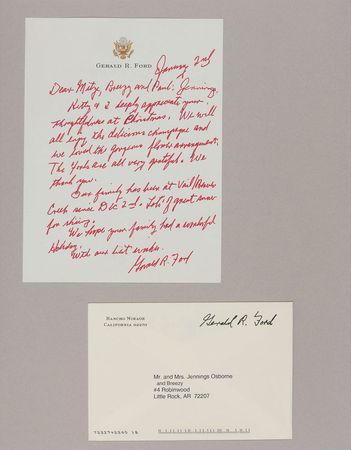 GERALD R. FORD
January 2nd
Dear Mitzi, Breezy and Paul: Jennings,
Betty & I deeply appreciate your
thoughtfulness at Christmas. We will
all enjoy the delicious champagne and
we loved the gorgeous floral arrangement.
The Fords are all very grateful. We
thank you.
Our family has been at Vail/Beaver
Creek since Dec 2nd. Lots of great snow
for skiing.
We hope your family had a wonderful
Holiday.
With our best wishes.
Gerald R. Ford
RANCHO MIRAGE
CALIFORNIA 92270
Gerald R. Ford
Mr. and Mrs. Jennings Osborne
and Breezy
#4 Robinwood
Little Rock, AR 72207